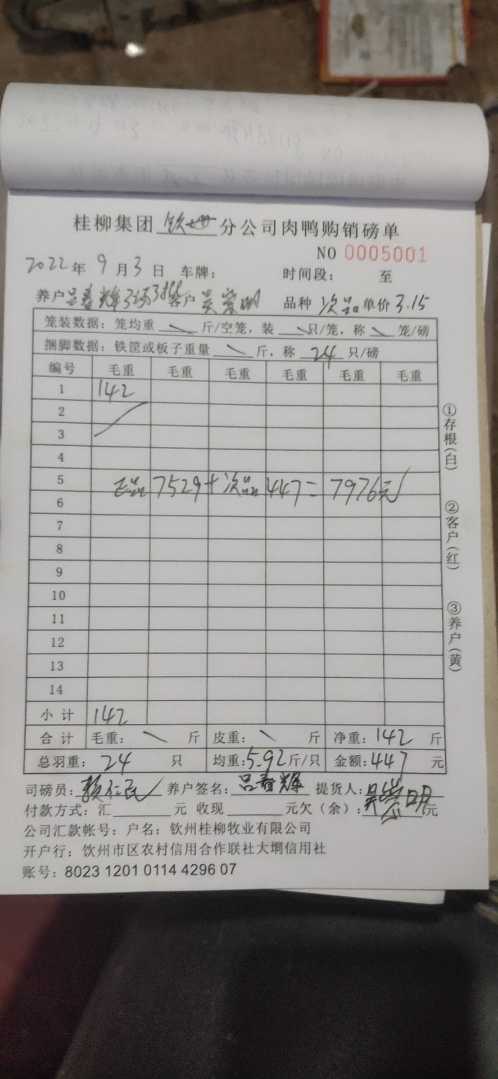 桂柳集团 钦州 分公司肉鸭购销磅单
NO 0005001
2022年 9月3日 车牌: 时间段: 至
养户吕春辉 客户吴 明 品种 次品 单价 3.15
笼装数据:笼均重 斤/空笼,装 只/笼,称 笼/磅
捆脚数据:铁筐或板子重量 斤,称 24 只/磅
编号 毛重 毛重 毛重 毛重 毛重 毛重
1 142
2
3
4
5 正品7529+次品447=7976元
6
7
8
9
10
11
12
13
14
小计 142
合计 毛重: 斤 皮重: 斤 净重:142 斤
总羽重:24 只 均重:5.92斤/只 金额:447 元
司磅员:赖仁民 养户签名:吕春辉 提货人:吴 明
付款方式:汇 元 收现 元欠(余): 元
公司汇款帐号:户名:钦州桂柳牧业有限公司
开户行:钦州市区农村信用合作联社大垌信用社
账号:8023 1201 0114 4296 07
①存根(白)
②客户(红)
③养户(黄)